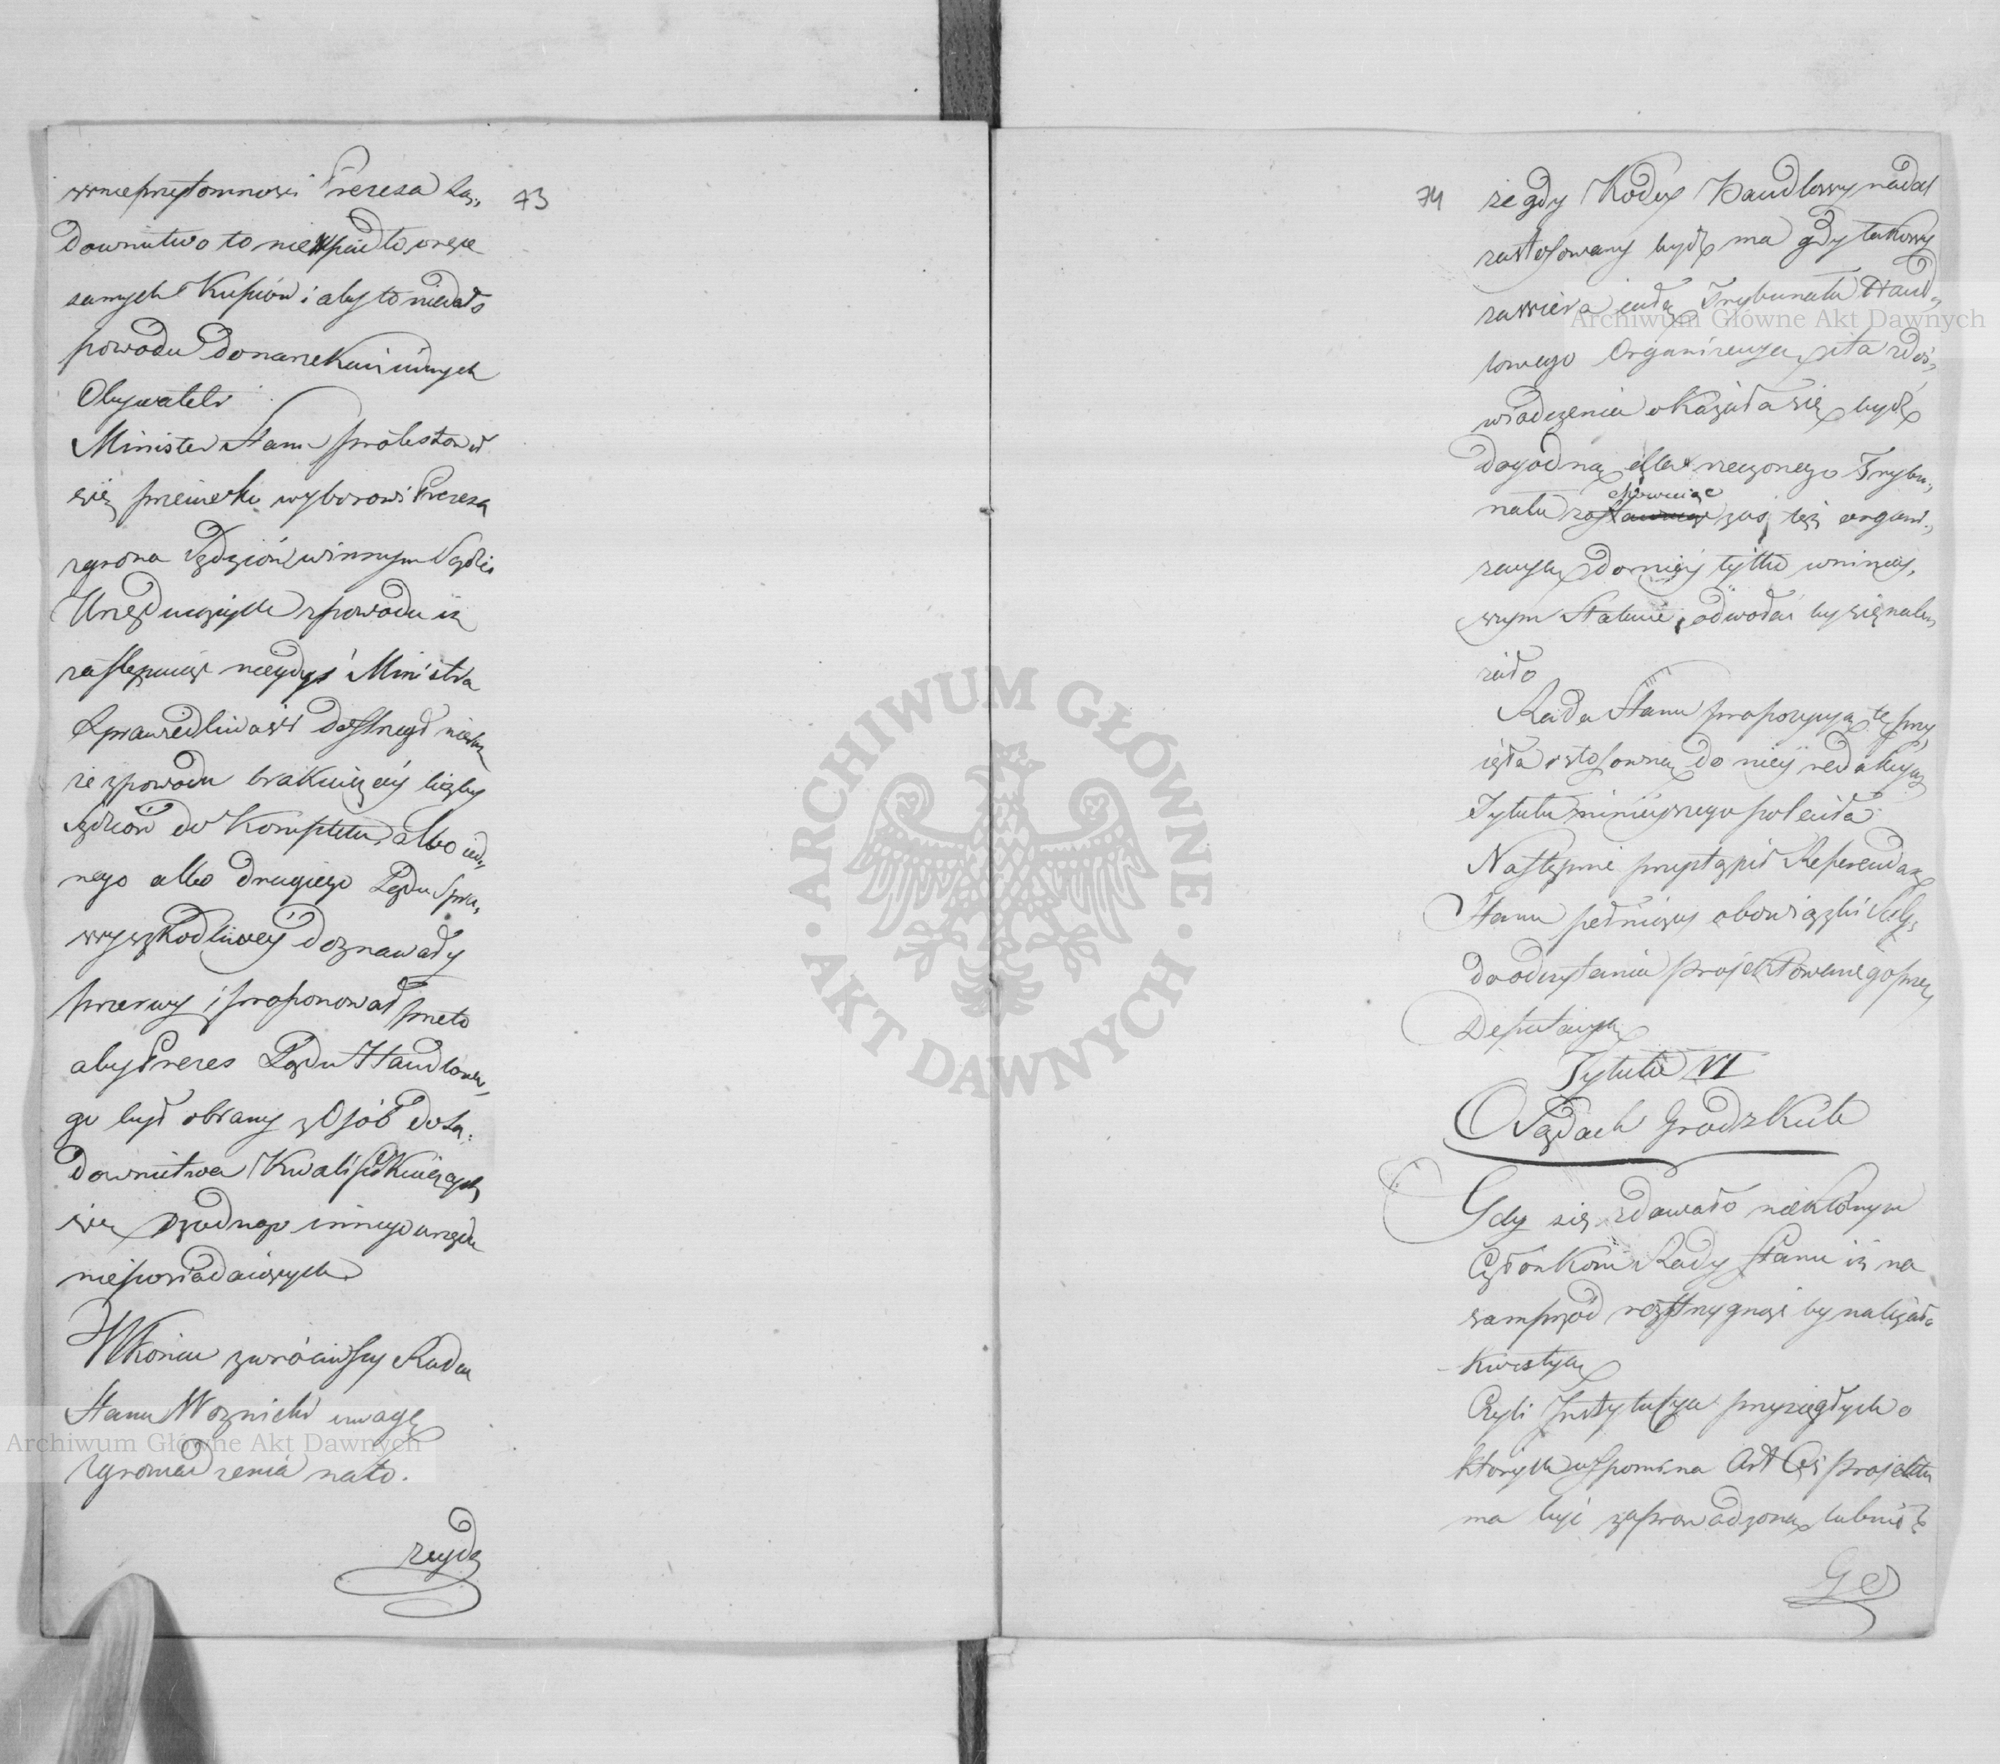 73
w nieprzytomnosci Prezesa Są,,
downictwo to nie wpadło w ręce
samych Kupców i aby to niedało
powodu do narzekań innych
Obywateli
Minister Stanu protestował
się przeciwko wyborowi Prezesa
z grona Sędziów w innym Sądzie
Urzęduiących z powodu iż
zastępuiąc niegdyś Ministra
Sprawiedliwości dostrzegł
że z powodu brakuiącey liczby
Sędziów do Kompletu, albo ied,,
nego albo drugiego Sądu Spra,,
wy szkodliwey doznawały
przerwy i proponował przeto
aby Prezes Sądu Handlowe,,
go był obrany z Osób do Są,,
downictwa Kwalifikuiących
się żadnego innego urzędu
nieposiadaiących
W Końcu zwróciwszy Radca
Stanu Woznicki uwagę
Zgromadzenia na to.
że gdy
74
że gdy Kodex Handlowy nadal
zastosowany bydź ma gdy takowy
zawiera całą Trybunału Hand,,
lowego Organizacyą, ta z doś,,
wiadczenia okazała się bydź
dogodną dla rzeczonego Trybu,,
nału stosownie zaś tęż organi,,
zacyą do niey tylko w niniey,,
szym Statucie, odwołać by się nale,,
żało
Rada Stanu propozycyą tę przy
ięła i stosowną do niey redakcyą
Tytułu ninieyszego poleciła
Następnie przystąpił Referendarz
Stanu pełniący obowiązki Sekr:
do odczytania projektowanego przez
Deputacyą
Tytułu VI
O Sądach Grodzkich
Gdy się zdawało niektórym
Członkom Rady Stanu iż na
samprzód rozstrzygnąć by należało
Kwestyą
Czyli Instytucya przysięgłych o
których wspomina Art projektu
ma być zaprowadzoną lub nie?
Gdy
Archiwum Główne Akt Dawnych
Archiwum Główne Akt Dawnych
ARCHIWUM GŁÓWNE · AKT DAWNYCH ·